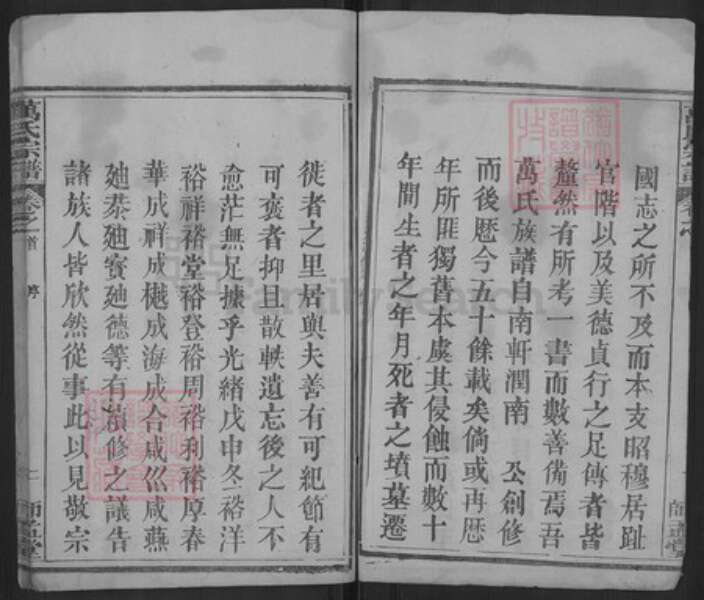 國志之所不及而本支昭穆居趾
官階以及美德貞行之足傳者皆
釐然有所考一書而數善備焉吾
萬氏族譜自南軒潤南 公創修
而後歷今五十餘載矣倘或再歷
年所匪獨舊本虞其侵蝕而數十
年間生者之年月死者之墳墓遷
徙者之里居與夫善有可紀節有
可褒者抑且散軼遺忘後之人不
愈茫無足據乎光緒戊申冬裕洋
裕祥裕堂裕登裕周裕利裕厚春
華成祥成樾成海成合咸烈咸燕
廸棻廸賓廸德等有續修之議告
諸族人皆欣然從事此以見敬宗
萬氏宗譜
卷之首
序
師孟堂